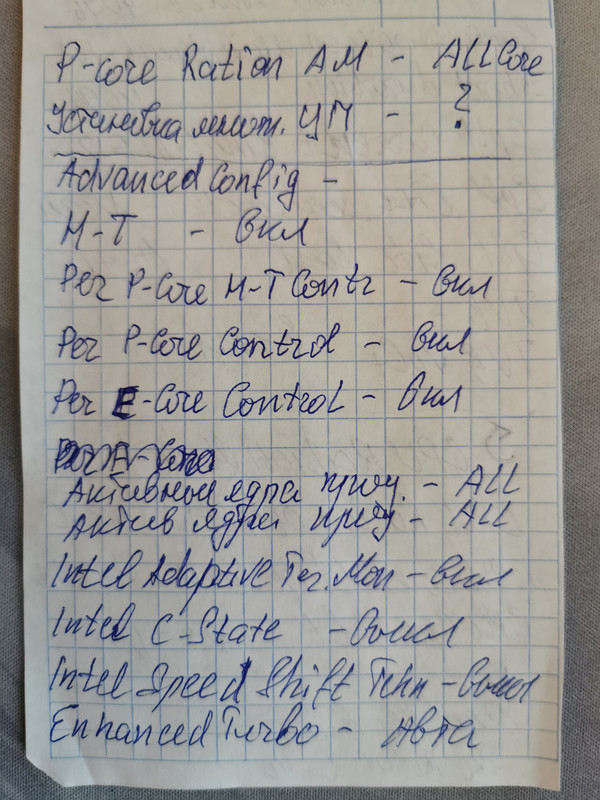 P-core Ration AM - ALLCore
Установка множ. УМ - ?
Advanced Config -
H-T - Вкл
Per P-Core H-T Contr - Вкл
Per P-Core Control - Вкл
Per E-Core Control - Вкл
Активные ядра проц. - ALL
Актив ядра проц - ALL
Intel Adaptive Ter. Mon - Вкл
Intel C-State - Выкл
Intel Speed Shift Tehn - Выкл
Enhanced Turbo - Авто